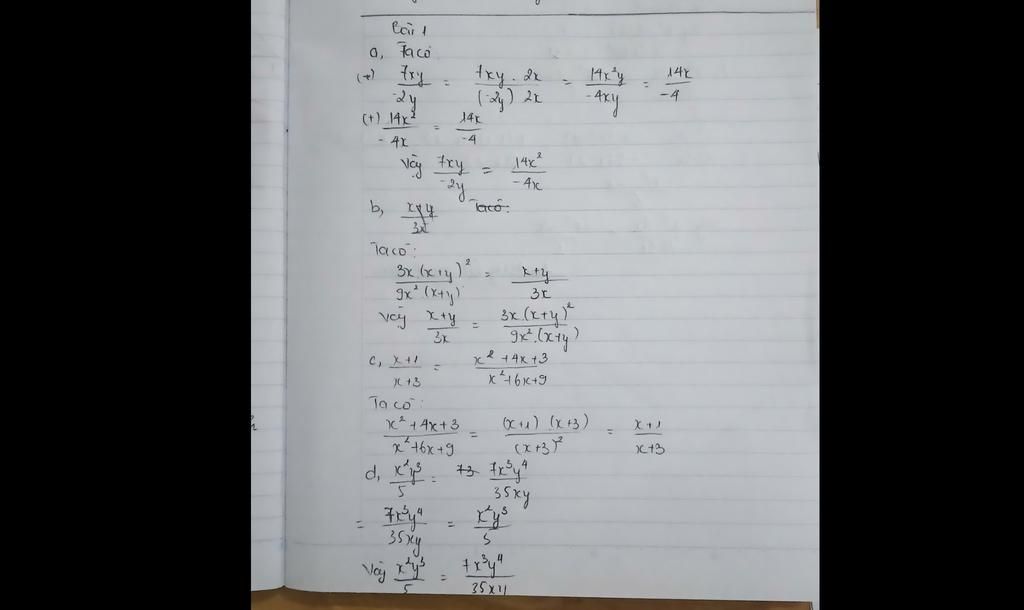 Bài 1
a, Ta có
(+) 7xy/-2y = 7xy . 2x/(-2y) 2x = 14x²y/-4xy = 14x/-4
(+) 14x²/-4x = 14x/-4
Vậy 7xy/-2y = 14x²/-4x
b, x+y/3x Ta có:
Ta có:
3x.(x+y)²/9x².(x+y) = x+y/3x
Vậy x+y/3x = 3x.(x+y)²/9x².(x+y)
c, x+1/x+3 = x²+4x+3/x²+6x+9
Ta có:
x²+4x+3/x²+6x+9 = (x+1) (x+3)/(x+3)² = x+1/x+3
d, x²y³/5 = 73 7x³y⁴/35xy
= 7x³y⁴/35xy = x²y³/5
Vậy x²y³/5 = 7x³y⁴/35xy